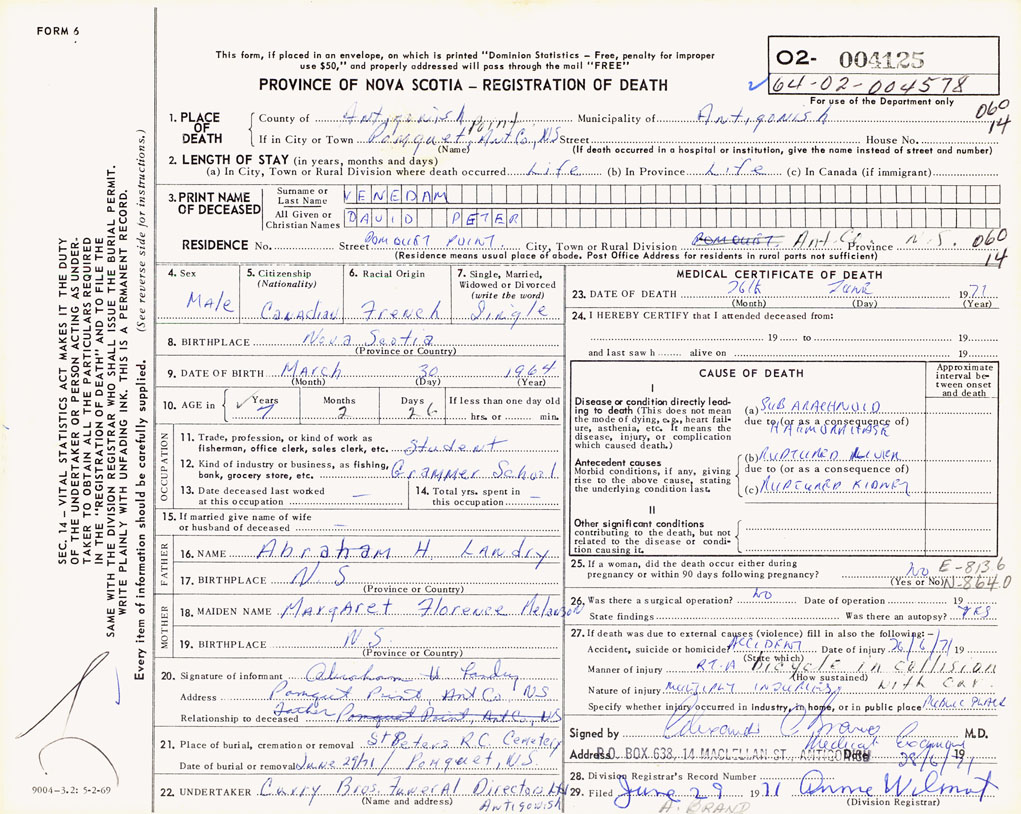 FORM 6
This form, if placed in an envelope, on which is printed "Dominion Statistics – Free, penalty for improper
use $50," and properly addressed will pass through the mail "FREE"
PROVINCE OF NOVA SCOTIA – REGISTRATION OF DEATH
02- 004125
64-02-004578
For use of the Department only
060
14
1. PLACE OF DEATH
County of Antigonish Municipality of Antigonish
If in City or Town Pomquet Point, Ant Co, NS Street House No.
(Name) (If death occurred in a hospital or institution, give the name instead of street and number)
2. LENGTH OF STAY (in years, months and days)
(a) In City, Town or Rural Division where death occurred Life (b) In Province Life (c) In Canada (if immigrant)
3. PRINT NAME OF DECEASED
Surname or Last Name VENEDAM
All Given or Christian Names DAVID PETER
RESIDENCE No. Street POMQUET POINT City, Town or Rural Division POMQUET Ant Co. Province N.S. 060
14
(Residence means usual place of abode. Post Office Address for residents in rural parts not sufficient)
SEC. 14 – VITAL STATISTICS ACT MAKES IT THE DUTY
OF THE UNDERTAKER OR PERSON ACTING AS UNDER-
TAKER TO OBTAIN ALL THE PARTICULARS REQUIRED
IN THE "REGISTRATION OF DEATH" AND TO FILE THE
SAME WITH THE DIVISION REGISTRAR WHO SHALL ISSUE THE BURIAL PERMIT.
WRITE PLAINLY WITH UNFADING INK. THIS IS A PERMANENT RECORD.
Every item of information should be carefully supplied. (See reverse side for instructions.)
4. Sex
Male
5. Citizenship
(Nationality)
Canadian
6. Racial Origin
French
7. Single, Married,
Widowed or Divorced
(write the word)
Single
8. BIRTHPLACE Nova Scotia
(Province or Country)
9. DATE OF BIRTH March 30 1964
(Month) (Day) (Year)
10. AGE in Years Months Days If less than one day old
7 2 26 hrs. or min.
OCCUPATION
11. Trade, profession, or kind of work as
fisherman, office clerk, sales clerk, etc. Student
12. Kind of industry or business, as fishing,
bank, grocery store, etc. Grammer School
13. Date deceased last worked
at this occupation –
14. Total yrs. spent in
this occupation –
15. If married give name of wife
or husband of deceased –
FATHER
16. NAME Abraham H. Landry
17. BIRTHPLACE N S
(Province or Country)
MOTHER
18. MAIDEN NAME Margaret Florence Melanson
19. BIRTHPLACE N S
(Province or Country)
20. Signature of informant Abraham H Landry
Address Pomquet Point Ant Co NS
Relationship to deceased Father Pomquet Point, Ant Co, NS
21. Place of burial, cremation or removal St Peters R.C. Cemetery
Date of burial or removal June 29/71 Pomquet, N.S.
22. UNDERTAKER Curry Bros. Funeral Directors Ltd
(Name and address) Antigonish
MEDICAL CERTIFICATE OF DEATH
23. DATE OF DEATH 26th June 1971
(Month) (Day) (Year)
24. I HEREBY CERTIFY that I attended deceased from:
19 to 19
and last saw h alive on 19
CAUSE OF DEATH
Approximate
interval be-
tween onset
and death
I
Disease or condition directly lead-
ing to death (This does not mean
the mode of dying, e.g., heart fail-
ure, asthenia, etc. It means the
disease, injury, or complication
which caused death.)
(a) SUB ARACHNOID
due to (or as a consequence of)
Antecedent causes
Morbid conditions, if any, giving
rise to the above cause, stating
the underlying condition last.
(b) RUPTURED LIVER
due to (or as a consequence of)
(c) RUPTURED KIDNEY
II
Other significant conditions
contributing to the death, but not
related to the disease or condi-
tion causing it.
25. If a woman, did the death occur either during
pregnancy or within 90 days following pregnancy? NO
(Yes or No)
E-8136
N-864.0
26. Was there a surgical operation? NO Date of operation 19
State findings Was there an autopsy? YES
27. If death was due to external causes (violence) fill in also the following:–
Accident, suicide or homicide? ACCIDENT Date of injury 26/6/71 19
(State which)
Manner of injury RTA bicycle in collision
(How sustained) with car
Nature of injury MULTIPLE INJURIES
Specify whether injury occurred in industry, in home, or in public place PUBLIC PLACE
Signed by M.D.
Medical Examiner
Address P.O. BOX 638, 14 MACLELLAN ST., ANTIGONISH Date 28/6/71 19
28. Division Registrar's Record Number
29. Filed June 29 1971 Anne Wilmot
(Division Registrar)
A. BRAND
9004-3.2: 5-2-69